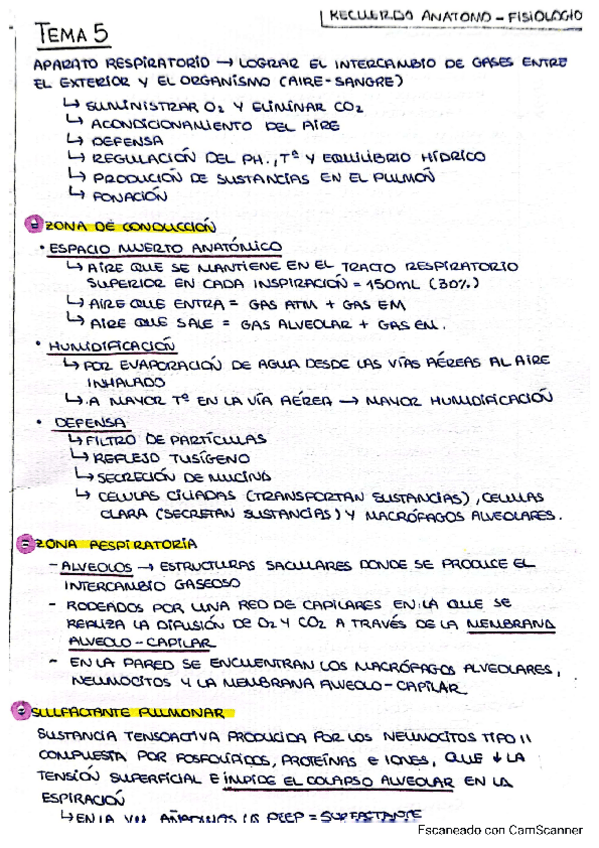 RECUERDO ANATOMO-FISIOLOGIO
TEMA 5
APARATO RESPIRATORIO → LOGRAR EL INTERCAMBIO DE GASES ENTRE
EL EXTERIOR Y EL ORGANISMO (AIRE-SANGRE)
↳ SUMINISTRAR O2 Y ELIMINAR CO2
↳ ACONDICIONAMIENTO DEL AIRE
↳ DEFENSA
↳ REGULACIÓN DEL PH., Tª Y EQUILIBRIO HÍDRICO
↳ PRODUCIÓN DE SUSTANCIAS EN EL PULMÓN
↳ FONACIÓN
ZONA DE CONDUCCIÓN
• ESPACIO MUERTO ANATÓMICO
↳ AIRE QUE SE MANTIENE EN EL TRACTO RESPIRATORIO
SUPERIOR EN CADA INSPIRACIÓN = 150mL (30%)
↳ AIRE QUE ENTRA = GAS ATM + GAS EM
↳ AIRE QUE SALE = GAS ALVEOLAR + GAS EM.
• HUMIDIFICACIÓN
↳ POR EVAPORACIÓN DE AGUA DESDE LAS VÍAS AÉREAS AL AIRE
INHALADO
↳ A MAYOR Tª EN LA VÍA AÉREA → MAYOR HUMIDIFICACIÓN
• DEFENSA
↳ FILTRO DE PARTÍCULAS
↳ REFLEJO TUSÍGENO
↳ SECRECIÓN DE MUCINA
↳ CELULAS CILIADAS (TRANSPORTAN SUSTANCIAS), CELULAS
CLARA (SECRETAN SUSTANCIAS) Y MACRÓFAGOS ALVEOLARES.
ZONA RESPIRATORIA
- ALVEOLOS → ESTRUCTURAS SACULARES DONDE SE PRODUCE EL
INTERCAMBIO GASEOSO
- RODEADOS POR UNA RED DE CAPILARES EN LA QUE SE
REALIZA LA DIFUSIÓN DE O2 Y CO2 A TRAVÉS DE LA MEMBRANA
ALVEOLO-CAPILAR
- EN LA PARED SE ENCUENTRAN LOS MACRÓFAGOS ALVEOLARES,
NEUMOCITOS Y LA MEMBRANA ALVEOLO-CAPILAR
SULFACTANTE PULMONAR
SUSTANCIA TENSOACTIVA PRODUCIDA POR LOS NEUMOCITOS TIPO II
COMPUESTA POR FOSFOLÍPIDOS, PROTEÍNAS E IONES, QUE ↓ LA
TENSIÓN SUPERFICIAL E IMPIDE EL COLAPSO ALVEOLAR EN LA
ESPIRACIÓN
↳ EN LA VM AÑADIMOS PEEP = SURFACTANTE
Escaneado con CamScanner